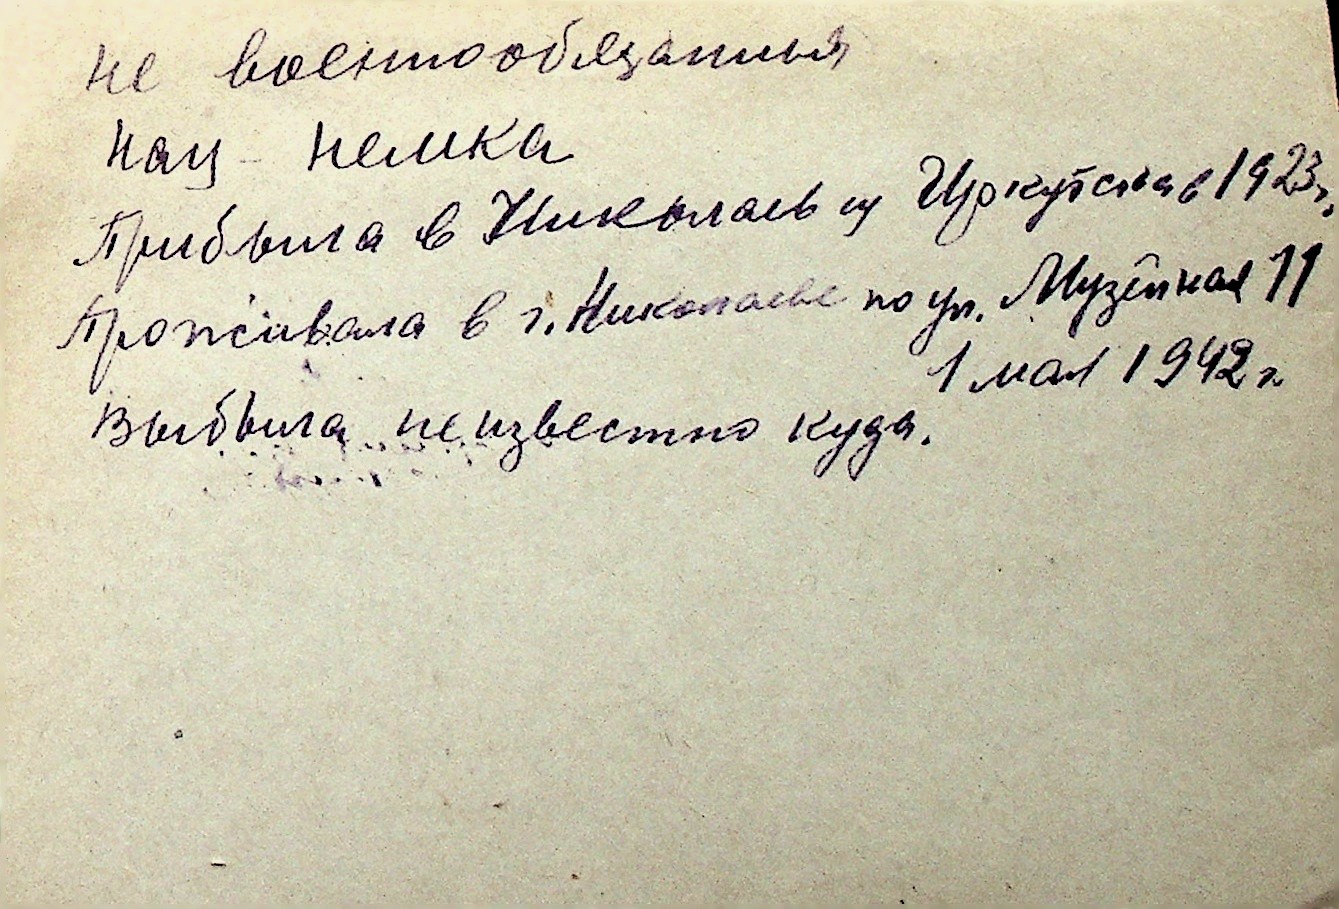 не военнообязанная
Нац - немка
Прибыла в Николаев из Иркутска в 1923 г.
Проживала в г. Николаеве по ул. Музейная 11
1 мая 1942 г.
Выбыла неизвестно куда.